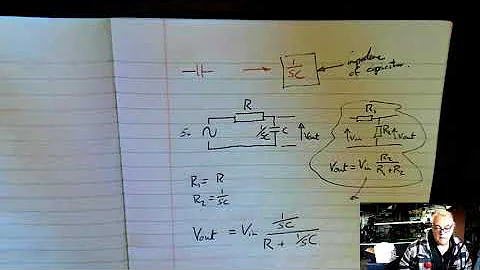 1/SC
impedance of capacitor.
R
R₁
1/SC C Vout
Vin R₂ Vout
Vout = Vin R₂/(R₁ + R₂)
R₁ = R
R₂ = 1/SC
Vout = Vin (1/SC)/(R + 1/SC)